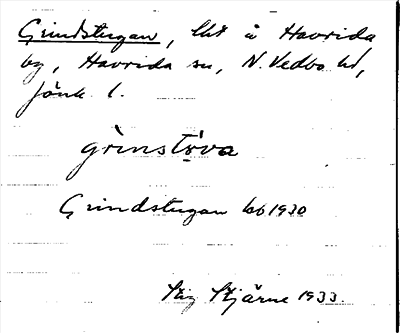 Grindstugan, lht å Haurida
by, Haurida sn, N. Vedbo hd,
Jönk. l.
grinstova
Grindstugan kb 1930
Stig Stjärne 1933.